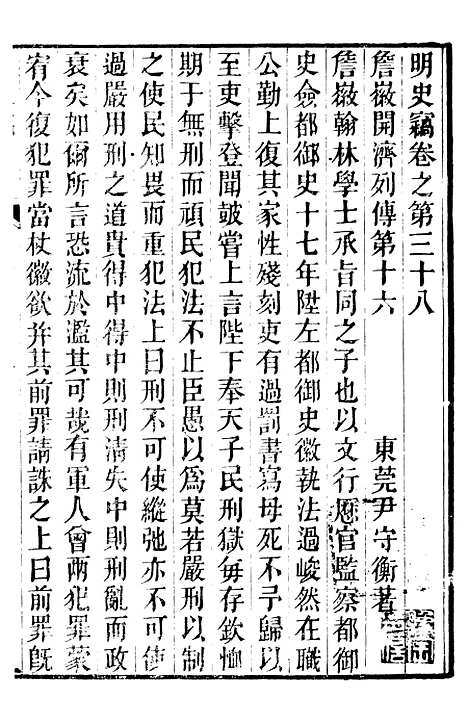 明史竊卷之第三十八
詹徽開濟列傳第十六
東莞尹守衡著
詹徽翰林學士承旨同之子也以文行應官監察都御
史僉都御史十七年陞左都御史徽執法過峻然在職
公勤上復其家性殘刻吏有過罰書寫母死不予歸以
至吏擊登聞鼓嘗上言陛下奉天子民刑獄每存欽恤
期于無刑而頑民犯法不止臣愚以爲莫若嚴刑以制
之使民知畏而重犯法上曰刑不可使縱弛亦不可使
過嚴用刑之道貴得中得中則刑清失中則刑亂而政
衰矣如爾所言恐流於濫其可哉有軍人曾兩犯罪蒙
宥今復犯罪當杖徽欲并其前罪請誅之上曰前罪旣